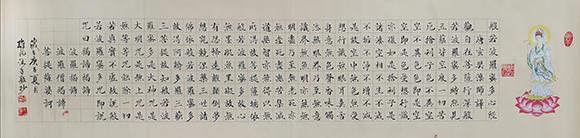 般若波羅蜜多心經
唐玄奘法師譯
觀自在菩薩行深般
若波羅蜜多時照見
五蘊皆空度一切苦
厄舍利子色不異空
空不異色色即是空
空即是色受想行識
亦復如是舍利子是
諸法空相不生不滅
不垢不淨不增不減
是故空中無色無受
想行識無眼耳鼻舌
身意無色聲香味觸
法無眼界乃至無意
識界無無明亦無無
明盡乃至無老死亦
無老死盡無苦集滅
道無智亦無得以無
所得故菩提薩埵依
般若波羅蜜多故心
無罣礙無罣礙故無
有恐怖遠離顛倒夢
想究竟涅槃三世諸
佛依般若波羅蜜多
故得阿耨多羅三藐
三菩提故知般若波
羅蜜多是大神咒是
大明咒是無上咒是
無等等咒能除一切
苦真實不虛故說般
若波羅蜜多咒即說
咒曰揭諦揭諦
波羅揭諦
波羅僧揭諦
菩提薩婆訶
歲次庚子夏月